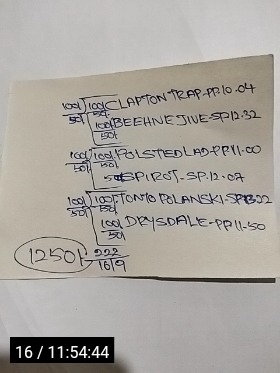 100/ 100/ CLAPTON TRAP-PP.10.04
50/ 50/
100/ BEEHNEJIVE-SP.12.32
50/
100/ 100/ POLSTEDLAD-PP.11-00
50/ 50/
SPIROT-SP.12.07
100/ 100/ TONTO POLANSKI-SP13.22
50/ 50/
100/ DRYSDALE-PP.11-50
50/
1250/- 222
1619
16 / 11:54:44